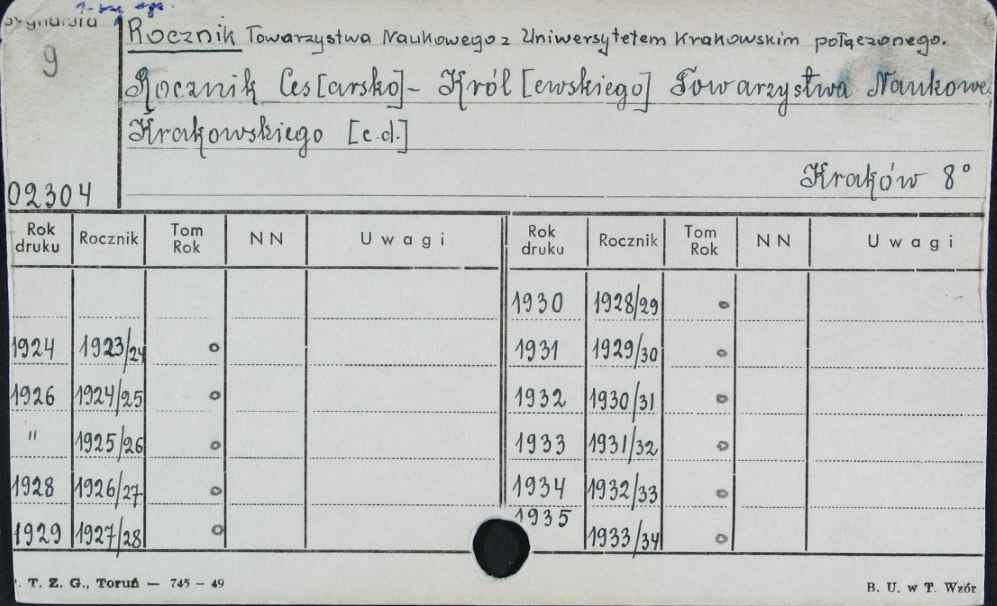 Sygnatura
9
Rocznik Towarzystwa Naukowego z Uniwersytetem Krakowskim połączonego.
Rocznik Ces[arsko]- Król[ewskiego] Towarzystwa Naukowe
Krakowskiego [c.d.]
Kraków 8°
02304
Rok druku Rocznik Tom Rok NN Uwagi Rok druku Rocznik Tom Rok NN Uwagi
1930 1928/29 o
1924 1923/24 o 1931 1929/30 o
1926 1924/25 o 1932 1930/31 o
" 1925/26 o 1933 1931/32 o
1928 1926/27 o 1934 1932/33 o
1929 1927/28 o 1935 1933/34 o
. T. Z. G., Toruń — 745 — 49 B. U. w T. Wzór